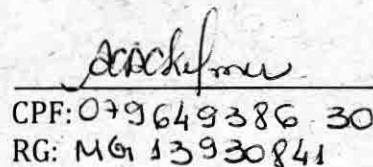 CPF: 079649386 30
RG: MG 13930841